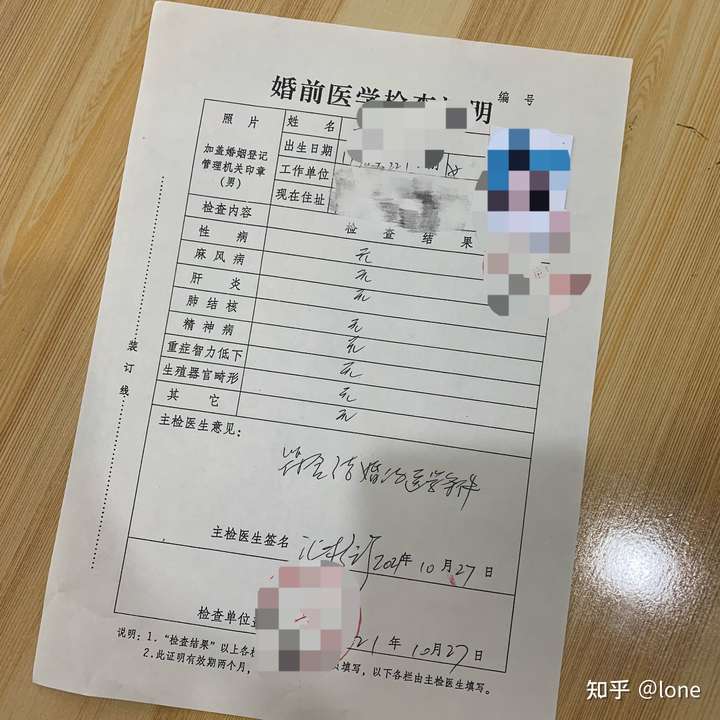 婚前医学检查 明
编 号
照 片
加盖婚姻登记
管理机关印章
(男)
姓 名
出生日期
工作单位
现在住址
检查内容 检 查 结 果
性 病 无
麻风病 无
肝 炎 无
肺结核 无
精神病 无
重症智力低下 无
生殖器官畸形 无
其 它 无
装 订 线
主检医生意见:
符合结婚的医学条件
主检医生签名
2021年 10月27日
检查单位
21年 10月27日
说明: 1. “检查结果”以上各栏
填写, 以下各栏由主检医生填写。
2. 此证明有效期两个月,
知乎 @lone